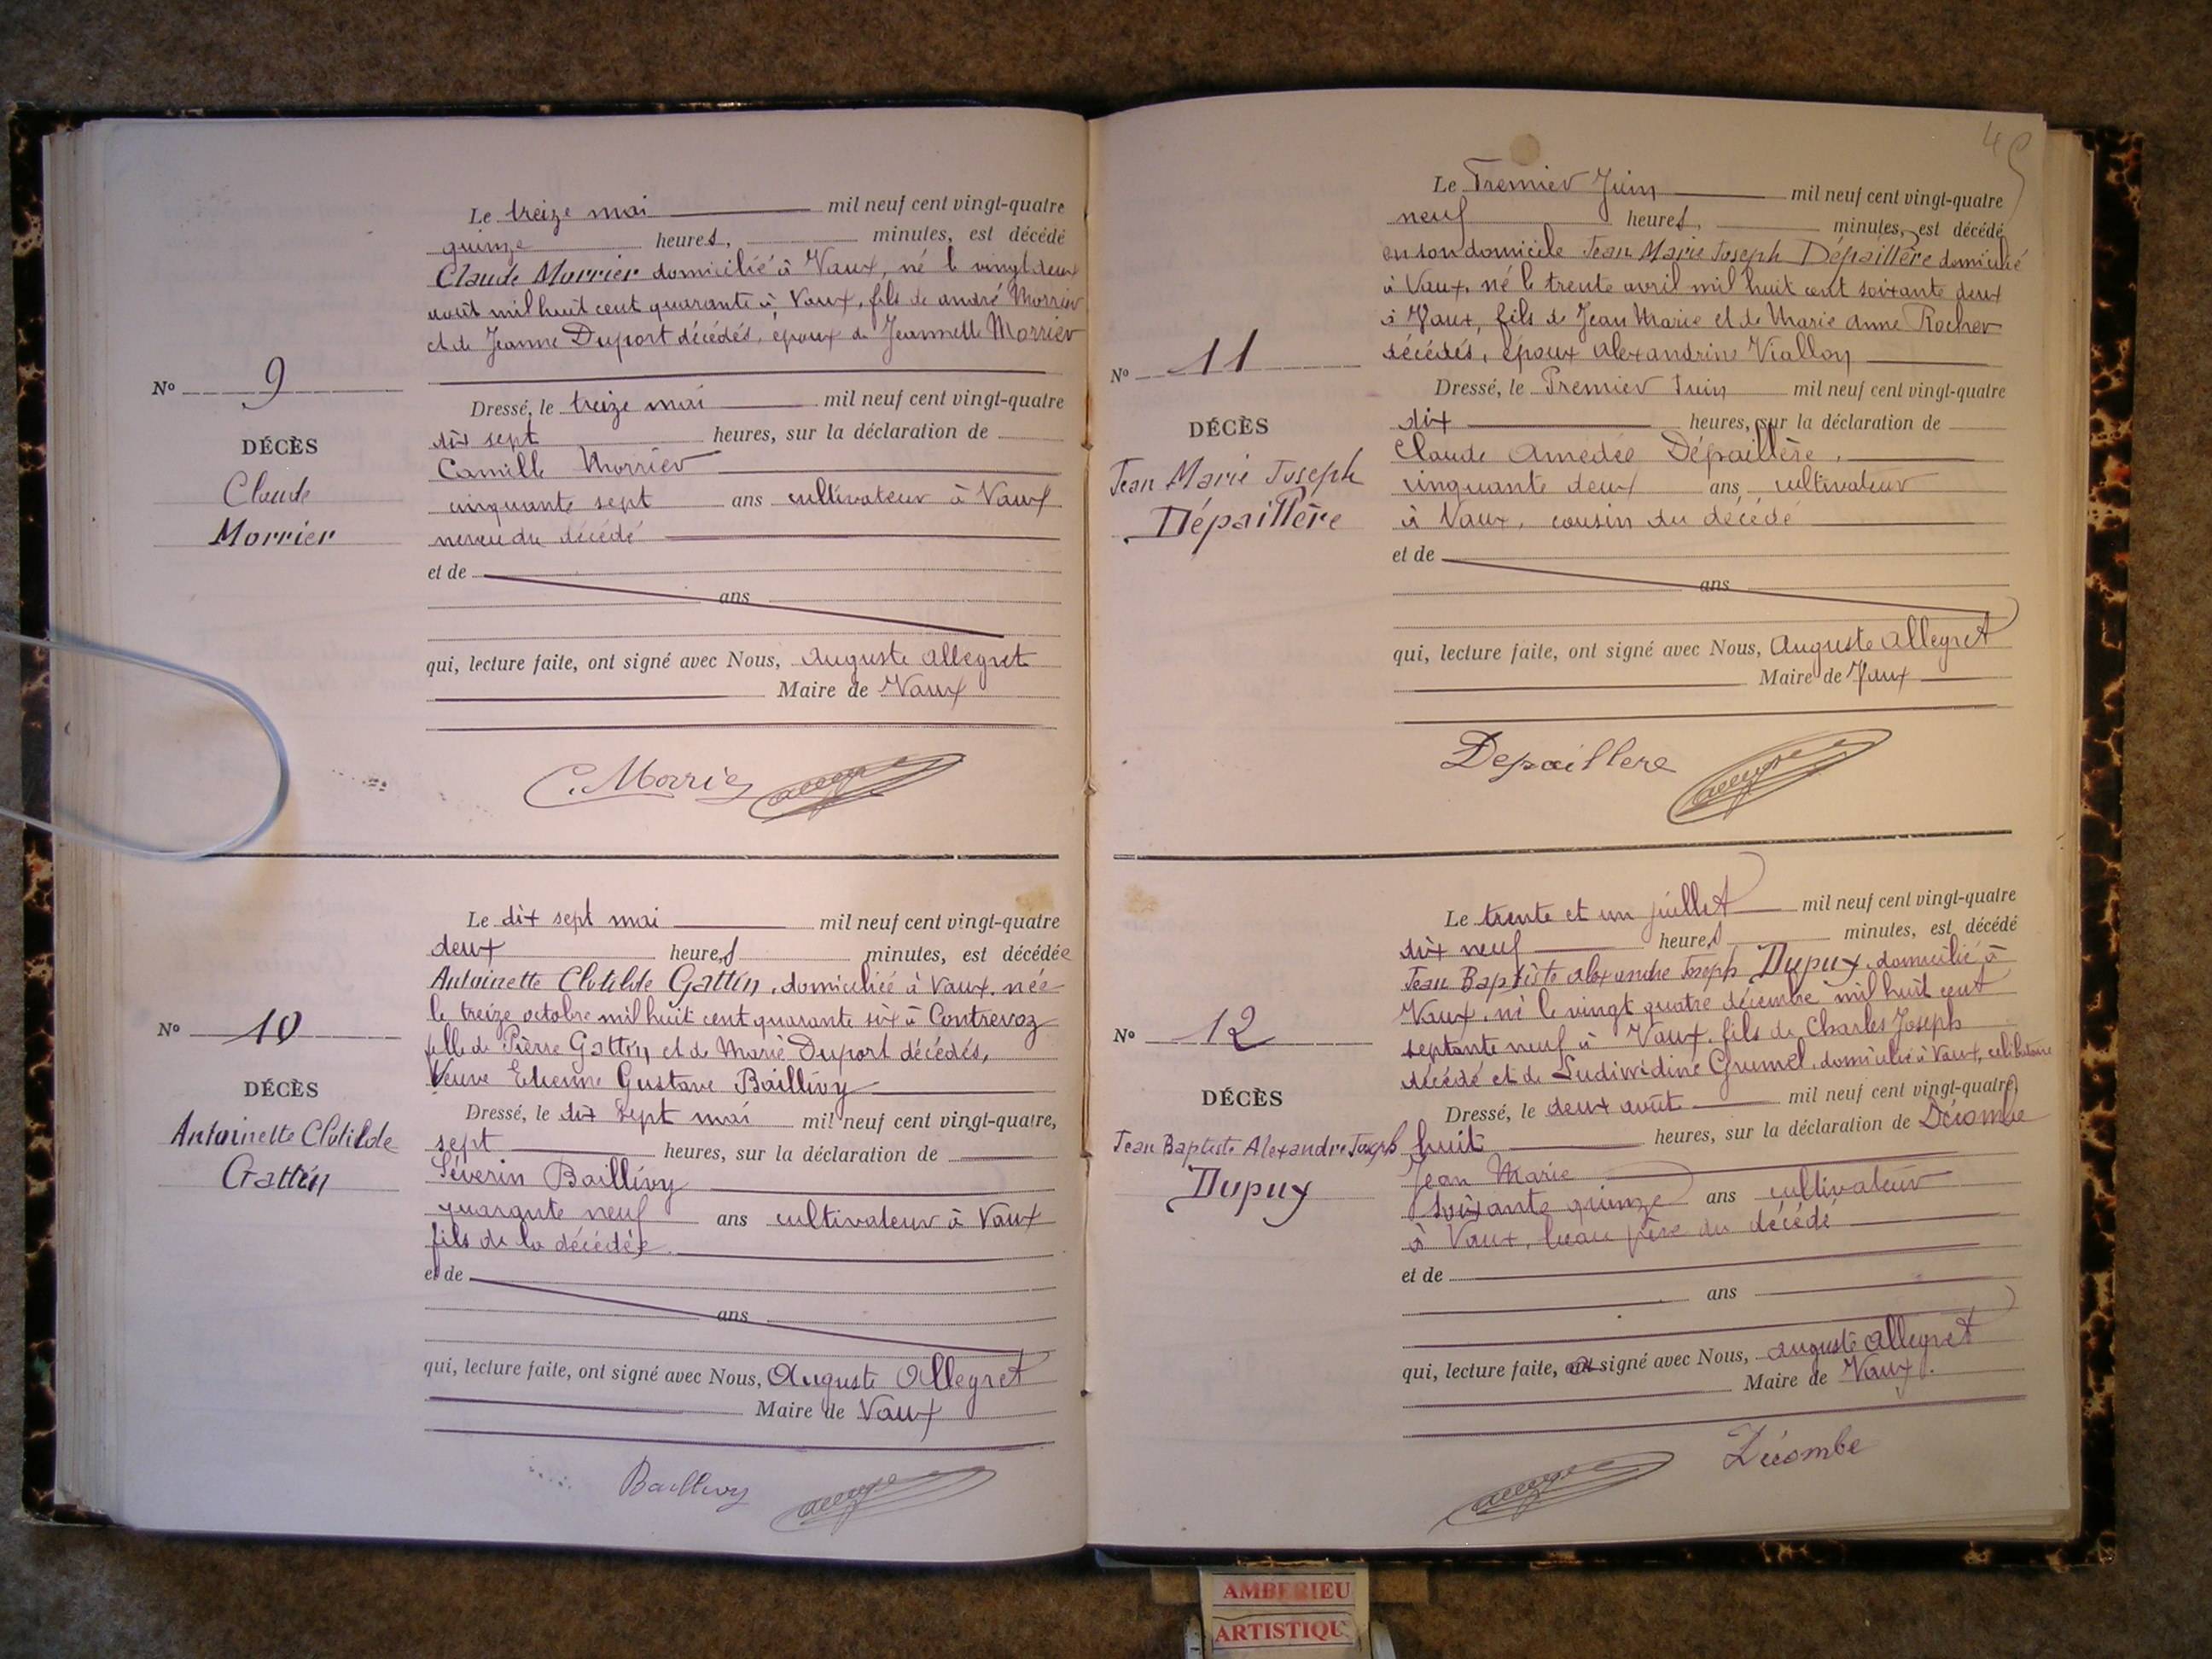 Le treize mai mil neuf cent vingt-quatre
quinze heures, minutes, est décédé
Claude Morrier domicilié à Vaux, né le vingt deux
août mil huit cent quarante à Vaux, fils de andré Morrier
et de Jeanne Duport décédés, époux de Jeannette Morrier
Nº 9
DÉCÈS
Claude
Morrier
Dressé, le treize mai mil neuf cent vingt-quatre
dix sept heures, sur la déclaration de
Camille Morrier
cinquante sept ans cultivateur à Vaux
neveu du décédé
et de
ans
qui, lecture faite, ont signé avec Nous, Auguste Allegret
Maire de Vaux
C. Morrier
Le dix sept mai mil neuf cent vingt-quatre
deux heures minutes, est décédée
Antoinette Clotilde Gattin, domiciliée à Vaux, née
le treize octobre mil huit cent quarante six à Contrevoz
fille de Pierre Gattin et de Marie Duport décédés,
Veuve Etienne Gustave Baillivy
Nº 10
DÉCÈS
Antoinette Clotilde
Gattin
Dressé, le dix sept mai mil neuf cent vingt-quatre,
sept heures, sur la déclaration de
Séverin Baillivy
quarante neuf ans cultivateur à Vaux
fils de la décédée.
et de
ans
qui, lecture faite, ont signé avec Nous, Auguste Allegret
Maire de Vaux
Baillivy
45
Le Premier Juin mil neuf cent vingt-quatre
neuf heures, minutes, est décédé
en son domicile Jean Marie Joseph Dépaillère domicilié
à Vaux, né le trente avril mil huit cent soixante deux
à Vaux, fils de Jean Marie et de Marie Anne Rocher
décédés, époux Alexandrine Viallon
Nº 11
DÉCÈS
Jean Marie Joseph
Dépaillère
Dressé, le Premier Juin mil neuf cent vingt-quatre
dix heures, sur la déclaration de
Claude Amédée Dépaillère,
cinquante deux ans cultivateur
à Vaux, cousin du décédé
et de
ans
qui, lecture faite, ont signé avec Nous, Auguste Allegret
Maire de Vaux
Depaillere
Le trente et un juillet mil neuf cent vingt-quatre
dix neuf heures minutes, est décédé
Jean Baptiste Alexandre Joseph Dupuy, domicilié à
Vaux, né le vingt quatre décembre mil huit cent
septante neuf à Vaux, fils de Charles Joseph
décédé et de Grumel, domiciliée à Vaux, célibataire
Nº 12
DÉCÈS
Jean Baptiste Alexandre Joseph
Dupuy
Dressé, le deux août mil neuf cent vingt-quatre
huit heures, sur la déclaration de Décombe
Jean Marie
soixante quinze ans cultivateur
à Vaux, beau père du décédé
et de
ans
qui, lecture faite, a signé avec Nous, Auguste Allegret
Maire de Vaux.
Décombe
AMBERIEU
ARTISTIQU